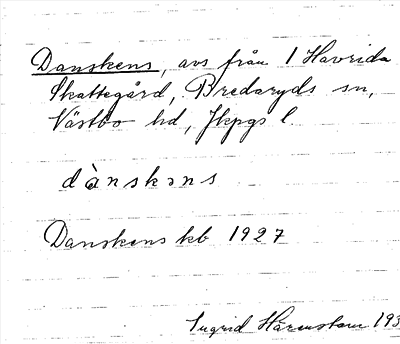 Danskens, avs från 1 Havrida
Skattegård, Bredaryds sn,
Västbo hd, Jkpgs l.
dànskəns
Danskens kb 1927
Ingrid Härenstam 193